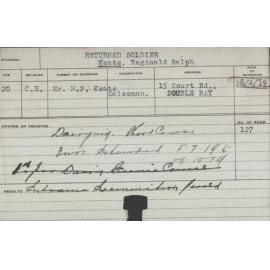 RETURNED SOLDIER
STUDENT Keats, Reginald Ralph
AGE RELIGION PARENT OR GUARDIAN OCCUPATION ADDRESS DATE OF ENTRANCE
20 C.E. Mr. H.P. Keats Salesman. 15 Court Rd., DOUBLE BAY 8/4/19
COURSE OF TRAINING NO. OF ROOM
Dairying. Short Course 127
3 mos. Extended 8.7.19
06.10.19
Dairy Science Course
RESULTS Entrance Examination passed